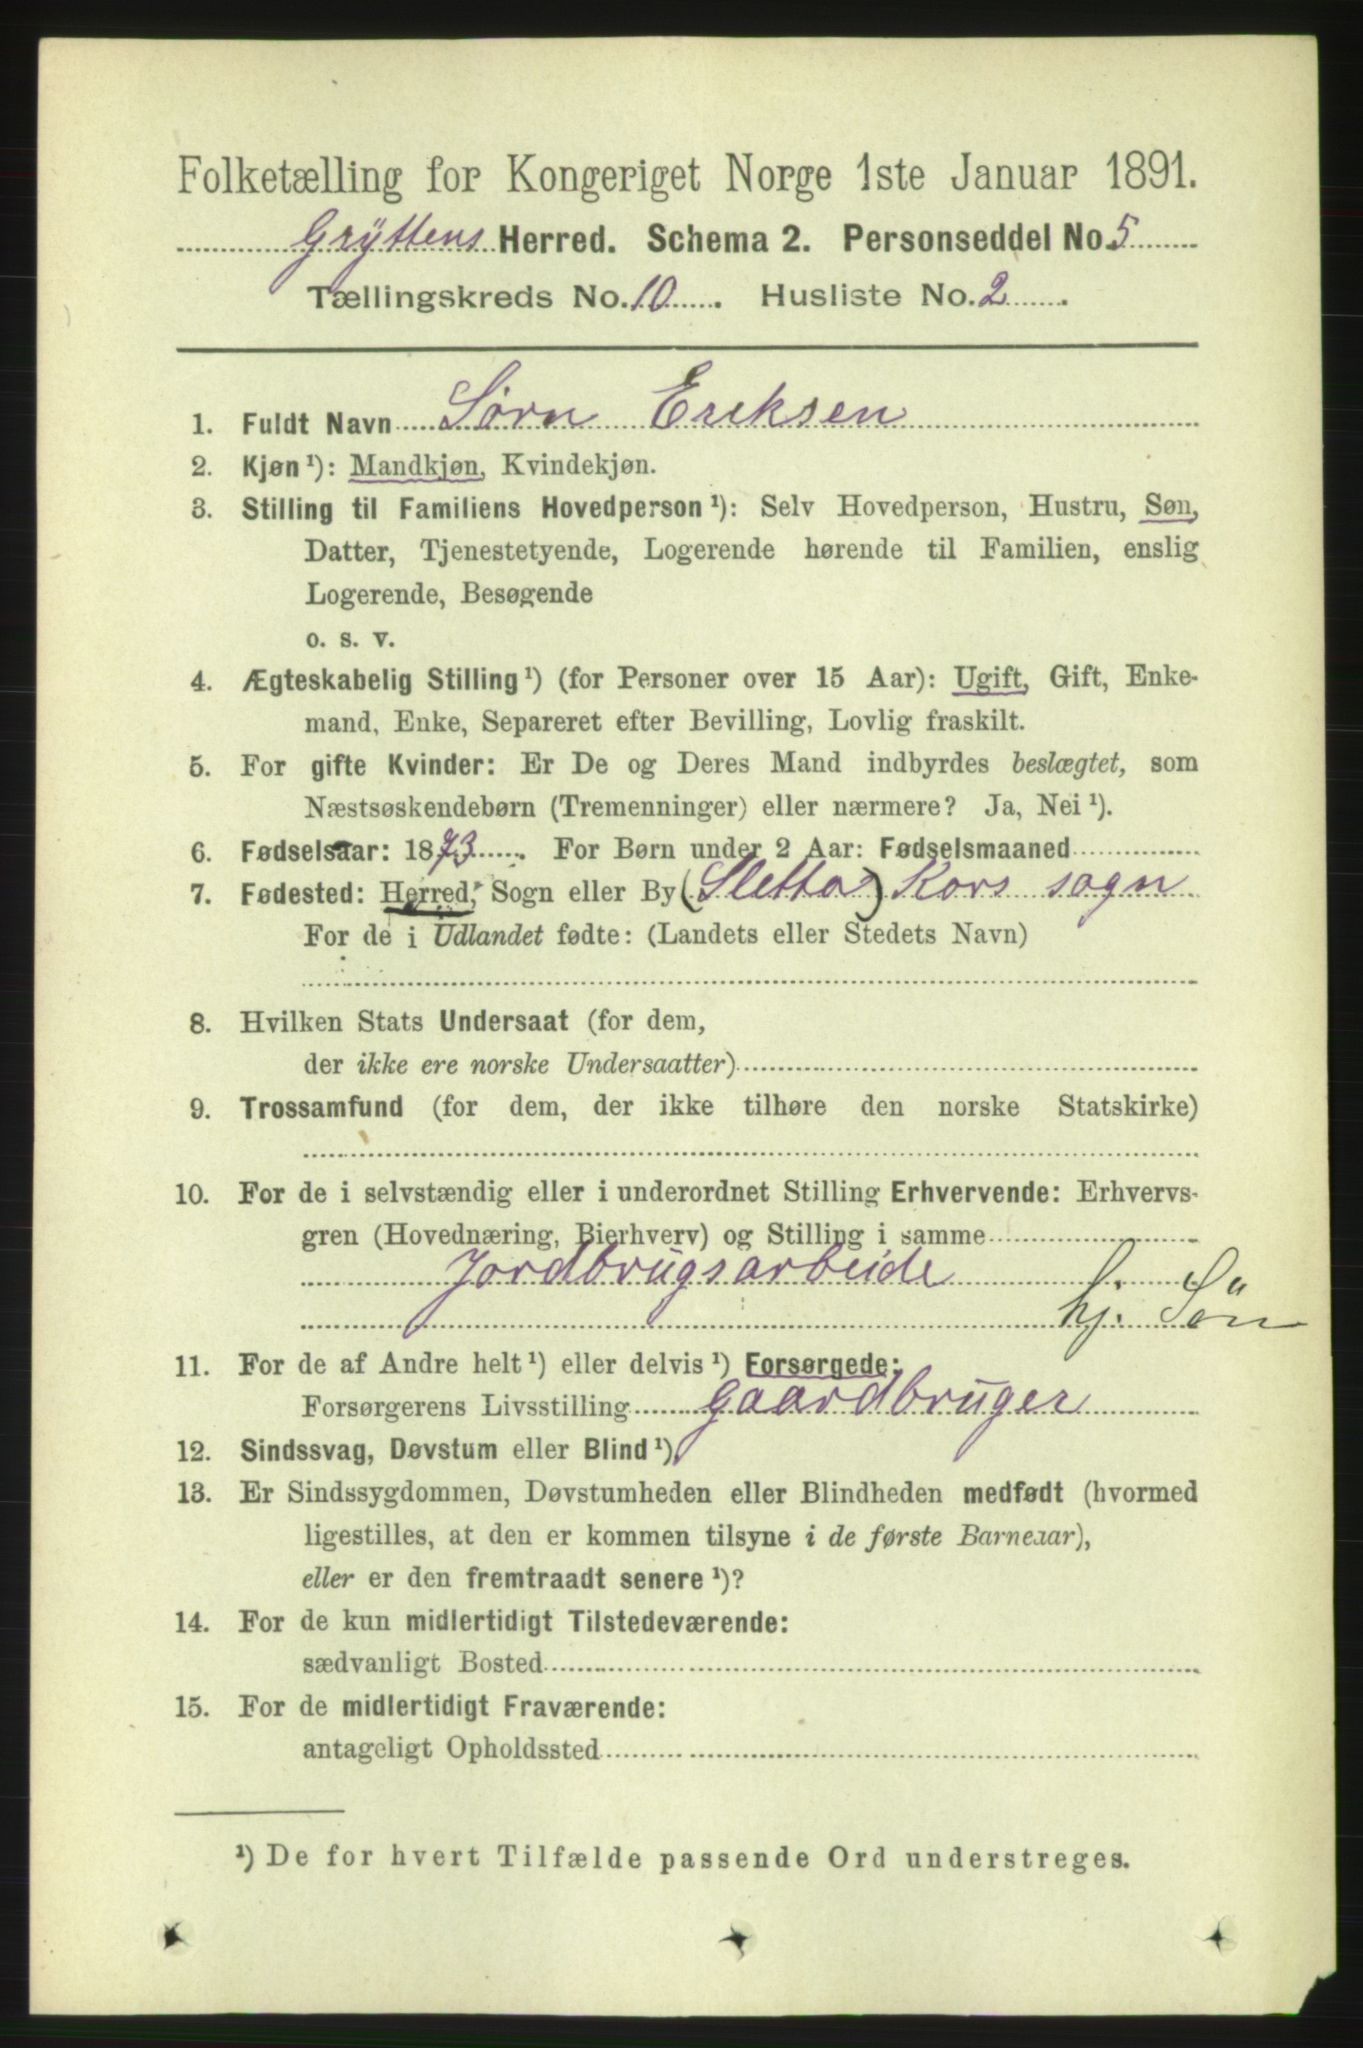 Folketælling for Kongeriget Norge 1ste Januar 1891.
Gryttens Herred. Schema 2. Personseddel No. 5
Tællingskreds No. 10. Husliste No. 2.
1. Fuldt Navn Sørn Eriksen
2. Kjøn ¹): Mandkjøn, Kvindekjøn.
3. Stilling til Familiens Hovedperson ¹): Selv Hovedperson, Hustru, Søn,
Datter, Tjenestetyende, Logerende hørende til Familien, enslig
Logerende, Besøgende
o. s. v.
4. Ægteskabelig Stilling ¹) (for Personer over 15 Aar): Ugift, Gift, Enke-
mand, Enke, Separeret efter Bevilling, Lovlig fraskilt.
5. For gifte Kvinder: Er De og Deres Mand indbyrdes beslægtet, som
Næstsøskendebørn (Tremenninger) eller nærmere? Ja, Nei ¹).
6. Fødselsaar: 1873. For Børn under 2 Aar: Fødselsmaaned
7. Fødested: Herred, Sogn eller By (Sletta) Kors sogn
For de i Udlandet fødte: (Landets eller Stedets Navn)
8. Hvilken Stats Undersaat (for dem,
der ikke ere norske Undersaatter)
9. Trossamfund (for dem, der ikke tilhøre den norske Statskirke)
10. For de i selvstændig eller i underordnet Stilling Erhvervende: Erhvervs-
gren (Hovednæring, Bierhverv) og Stilling i samme
Jordbrugsarbeide
hj. Sön
11. For de af Andre helt ¹) eller delvis ¹) Forsørgede:
Forsørgerens Livsstilling gaardbruger
12. Sindssvag, Døvstum eller Blind ¹).
13. Er Sindssygdommen, Døvstumheden eller Blindheden medfødt (hvormed
ligestilles, at den er kommen tilsyne i de første Barneaar),
eller er den fremtraadt senere ¹)?
14. For de kun midlertidigt Tilstedeværende:
sædvanligt Bosted
15. For de midlertidigt Fraværende:
antageligt Opholdssted
¹) De for hvert Tilfælde passende Ord understreges.